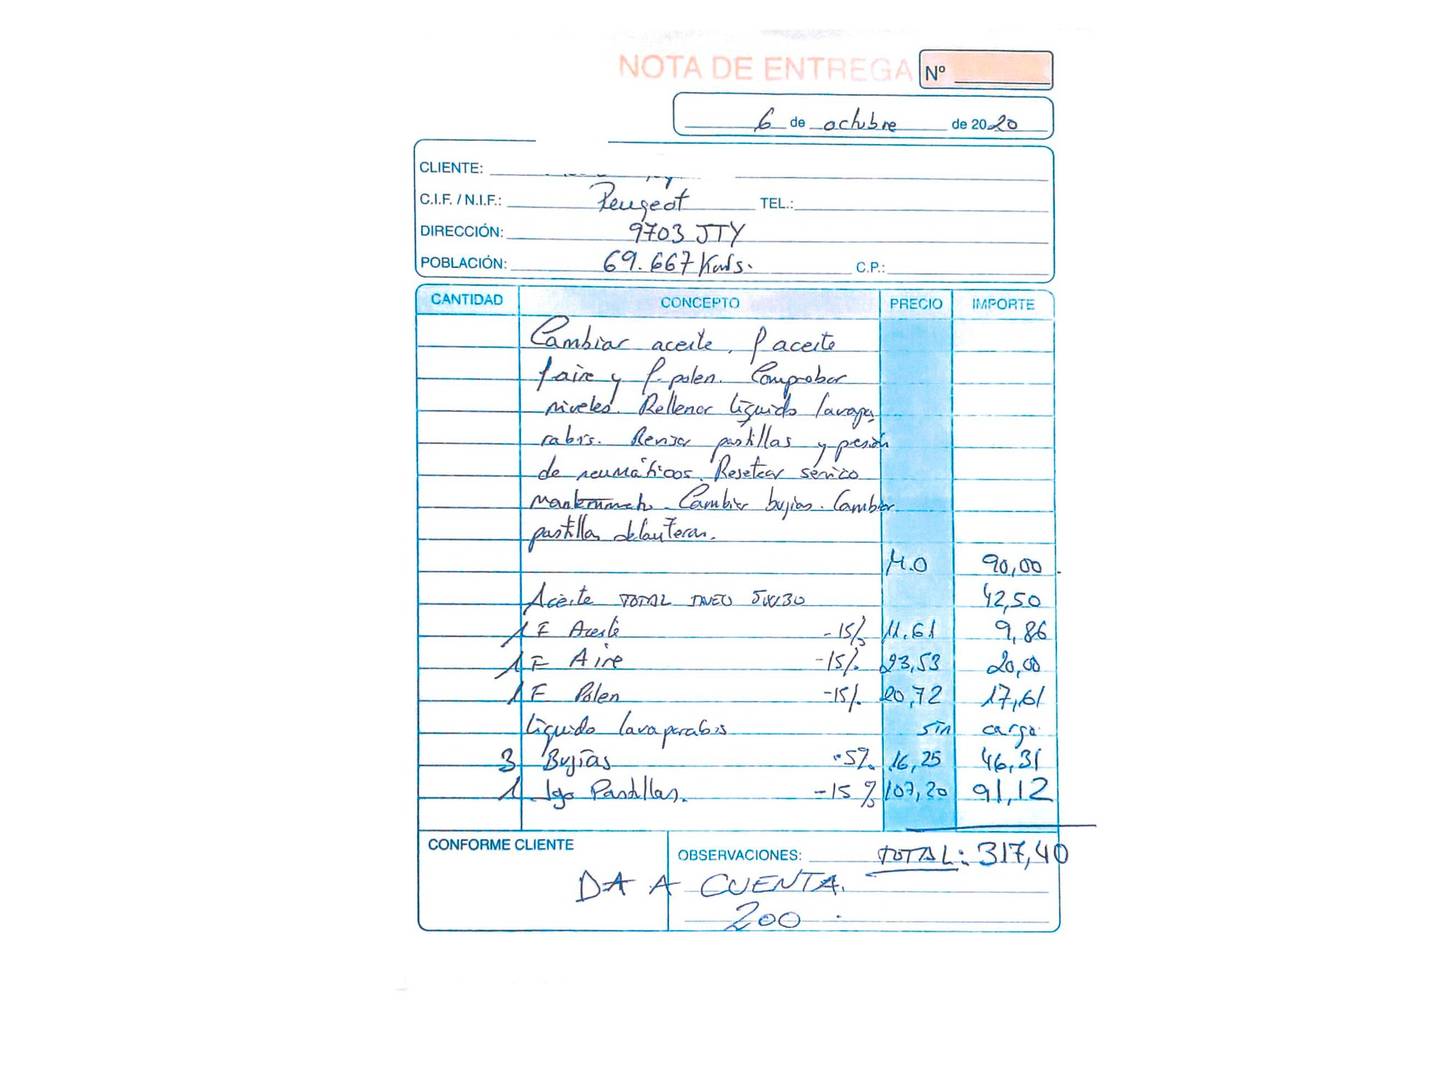 NOTA DE ENTREGA Nº
6 de octubre de 2020
CLIENTE:
C.I.F. / N.I.F.: Peugeot TEL.:
DIRECCIÓN: 9703 JTY
POBLACIÓN: 69.667 Kms. C.P.:
CANTIDAD CONCEPTO PRECIO IMPORTE
Cambiar aceite, f aceite
f aire y f. polen. Comprobar
niveles. Rellenar líquido lavapa
rabis. Revisar pastillas y presión
de neumáticos. Resetear servico
Cambiar bujías. Cambiar
pastillas delanteras.
M.O 90,00
Aceite TOTAL INEO 5W30 42,50
1 F Aceite -15% 11,61 9,86
1 F Aire -15% 23,53 20,00
1 F Polen -15% 20,72 17,61
líquido lavaparabis sin cargo
3 Bujías -5% 16,25 46,31
1 Jgo Pastillas. -15% 107,20 91,12
CONFORME CLIENTE
OBSERVACIONES: TOTAL: 317,40
DA A CUENTA.
200